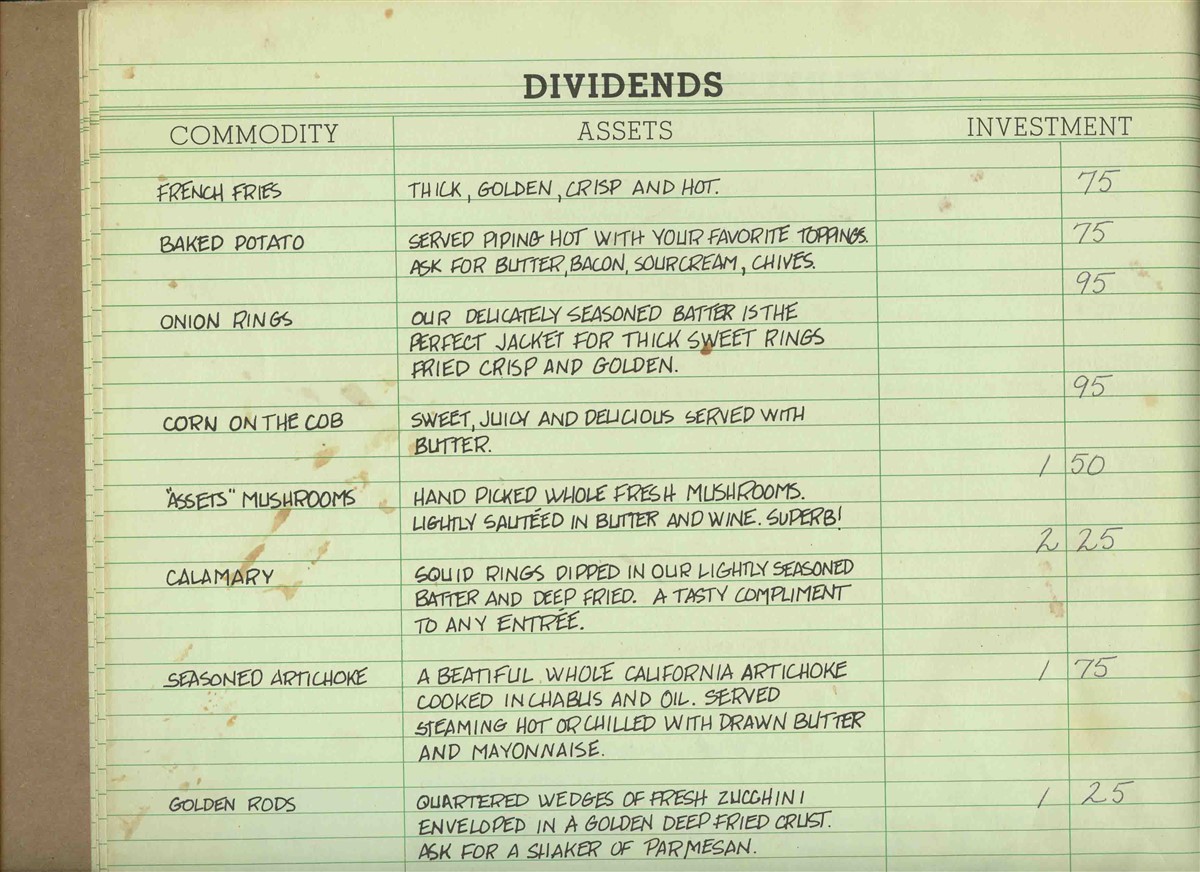 DIVIDENDS
COMMODITY ASSETS INVESTMENT
FRENCH FRIES THICK, GOLDEN, CRISP AND HOT. 75
BAKED POTATO SERVED PIPING HOT WITH YOUR FAVORITE TOPPINGS. 75
ASK FOR BUTTER, BACON, SOURCREAM, CHIVES.
95
ONION RINGS OUR DELICATELY SEASONED BATTER IS THE
PERFECT JACKET FOR THICK SWEET RINGS
FRIED CRISP AND GOLDEN.
95
CORN ON THE COB SWEET, JUICY AND DELICIOUS SERVED WITH
BUTTER.
1 50
"ASSETS" MUSHROOMS HAND PICKED WHOLE FRESH MUSHROOMS.
LIGHTLY SAUTÉED IN BUTTER AND WINE. SUPERB!
2 25
CALAMARY SQUID RINGS DIPPED IN OUR LIGHTLY SEASONED
BATTER AND DEEP FRIED. A TASTY COMPLIMENT
TO ANY ENTRÉE.
SEASONED ARTICHOKE A BEATIFUL WHOLE CALIFORNIA ARTICHOKE 1 75
COOKED IN CHABLIS AND OIL. SERVED
STEAMING HOT OR CHILLED WITH DRAWN BUTTER
AND MAYONNAISE.
GOLDEN RODS QUARTERED WEDGES OF FRESH ZUCCHINI 1 25
ENVELOPED IN A GOLDEN DEEP FRIED CRUST.
ASK FOR A SHAKER OF PARMESAN.